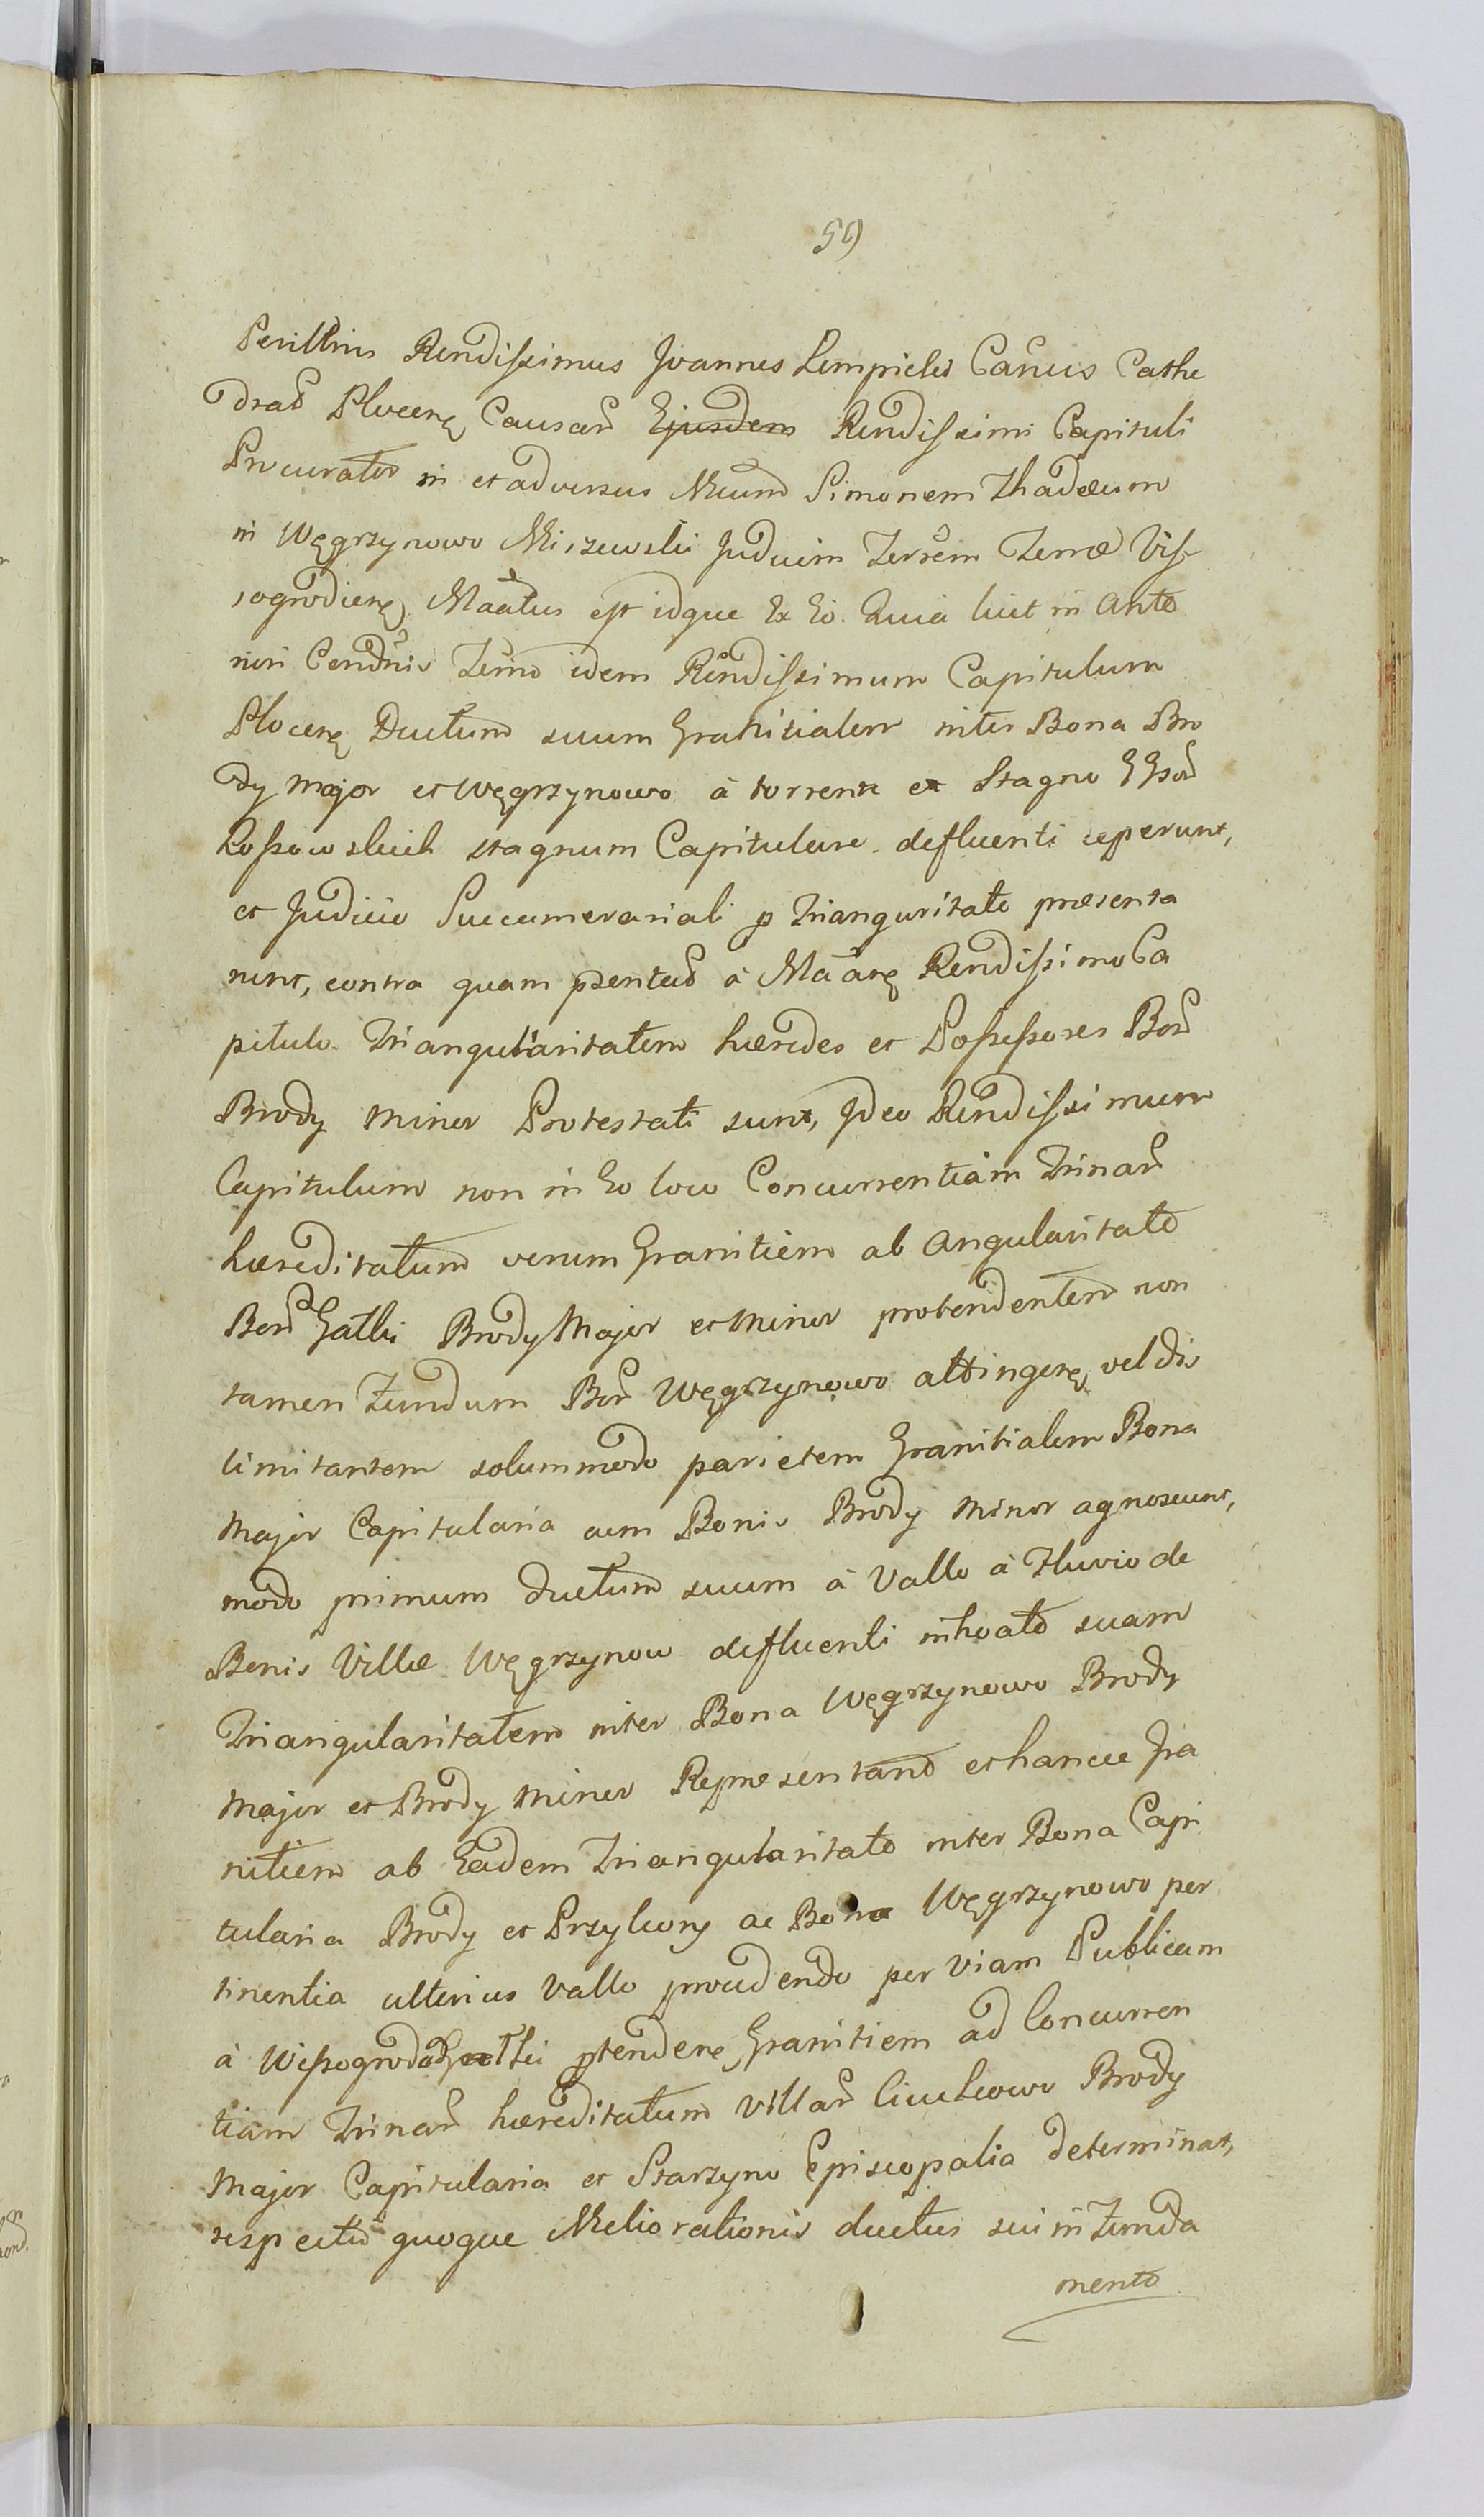 59
Perilltris Rendissimus Joannes Lempicki Canus Cathe
dral Plocens Causar Ejusdem Rendissimi Capituli
Procurator in et adversus Mcum Simonem Thadæum
in Węgrzynowo Miszewski Judicem Terrem Terræ Vis
sogrodiens Maātus est idque Ex Eo. Quia licet in Ante
riori Condnis Termo idem Rendissimum Capitulum
Plocens Ductum suum Granitialem inter Bona Bro
dy Major et Węgrzynowo à torrente ex Stagno
Kossowskich stagnum Capitulare defluenti ceperunt,
et Judicio Succamerariali p Trianguritate præsenta
runt, contra quam pzentad à Maāre Rendissimo Ca
pitulo Triangularitatem hæredes et Possessores Bor
Brody Minor Protestati sunt, Ideo Rendissimum
Capitulum non in Eo loco Concurrentiam Trinar
hæreditatum verum Granitiem ab angularitate
Bor Gatki Brody Major et Minor protendentem non
tamen Fundum Bor Węgrzynowo attingere, vel dis
limitantem solummodo parietem Granitialem Bona
Major Capitularia cum Bonis Brody Minor agnoscunt,
modo primum Ductum suum à Vallo à Fluvio de
Bonis Villæ Węgrzynow defluenti inhoato suam
Triangularitatem inter Bona Węgrzynowo Brody
Major et Brody Minor Repræsentand et hance Gra
nitiem ab Eadem Triangularitate inter Bona Capi
tularia Brody et Przykory ac Bona Węgrzynowo per
tinentia ulterius Vallo procedendo per viam Publicam
à Wissogrod ptendere, Granitiem ad Concurren
tiam Trinar hæreditatum Villar Ciućkowo Brody
Major Capitularia et Starzyno Episcopalia determinat,
respectu quoque Meliorationis ductus sui in Funda
mento